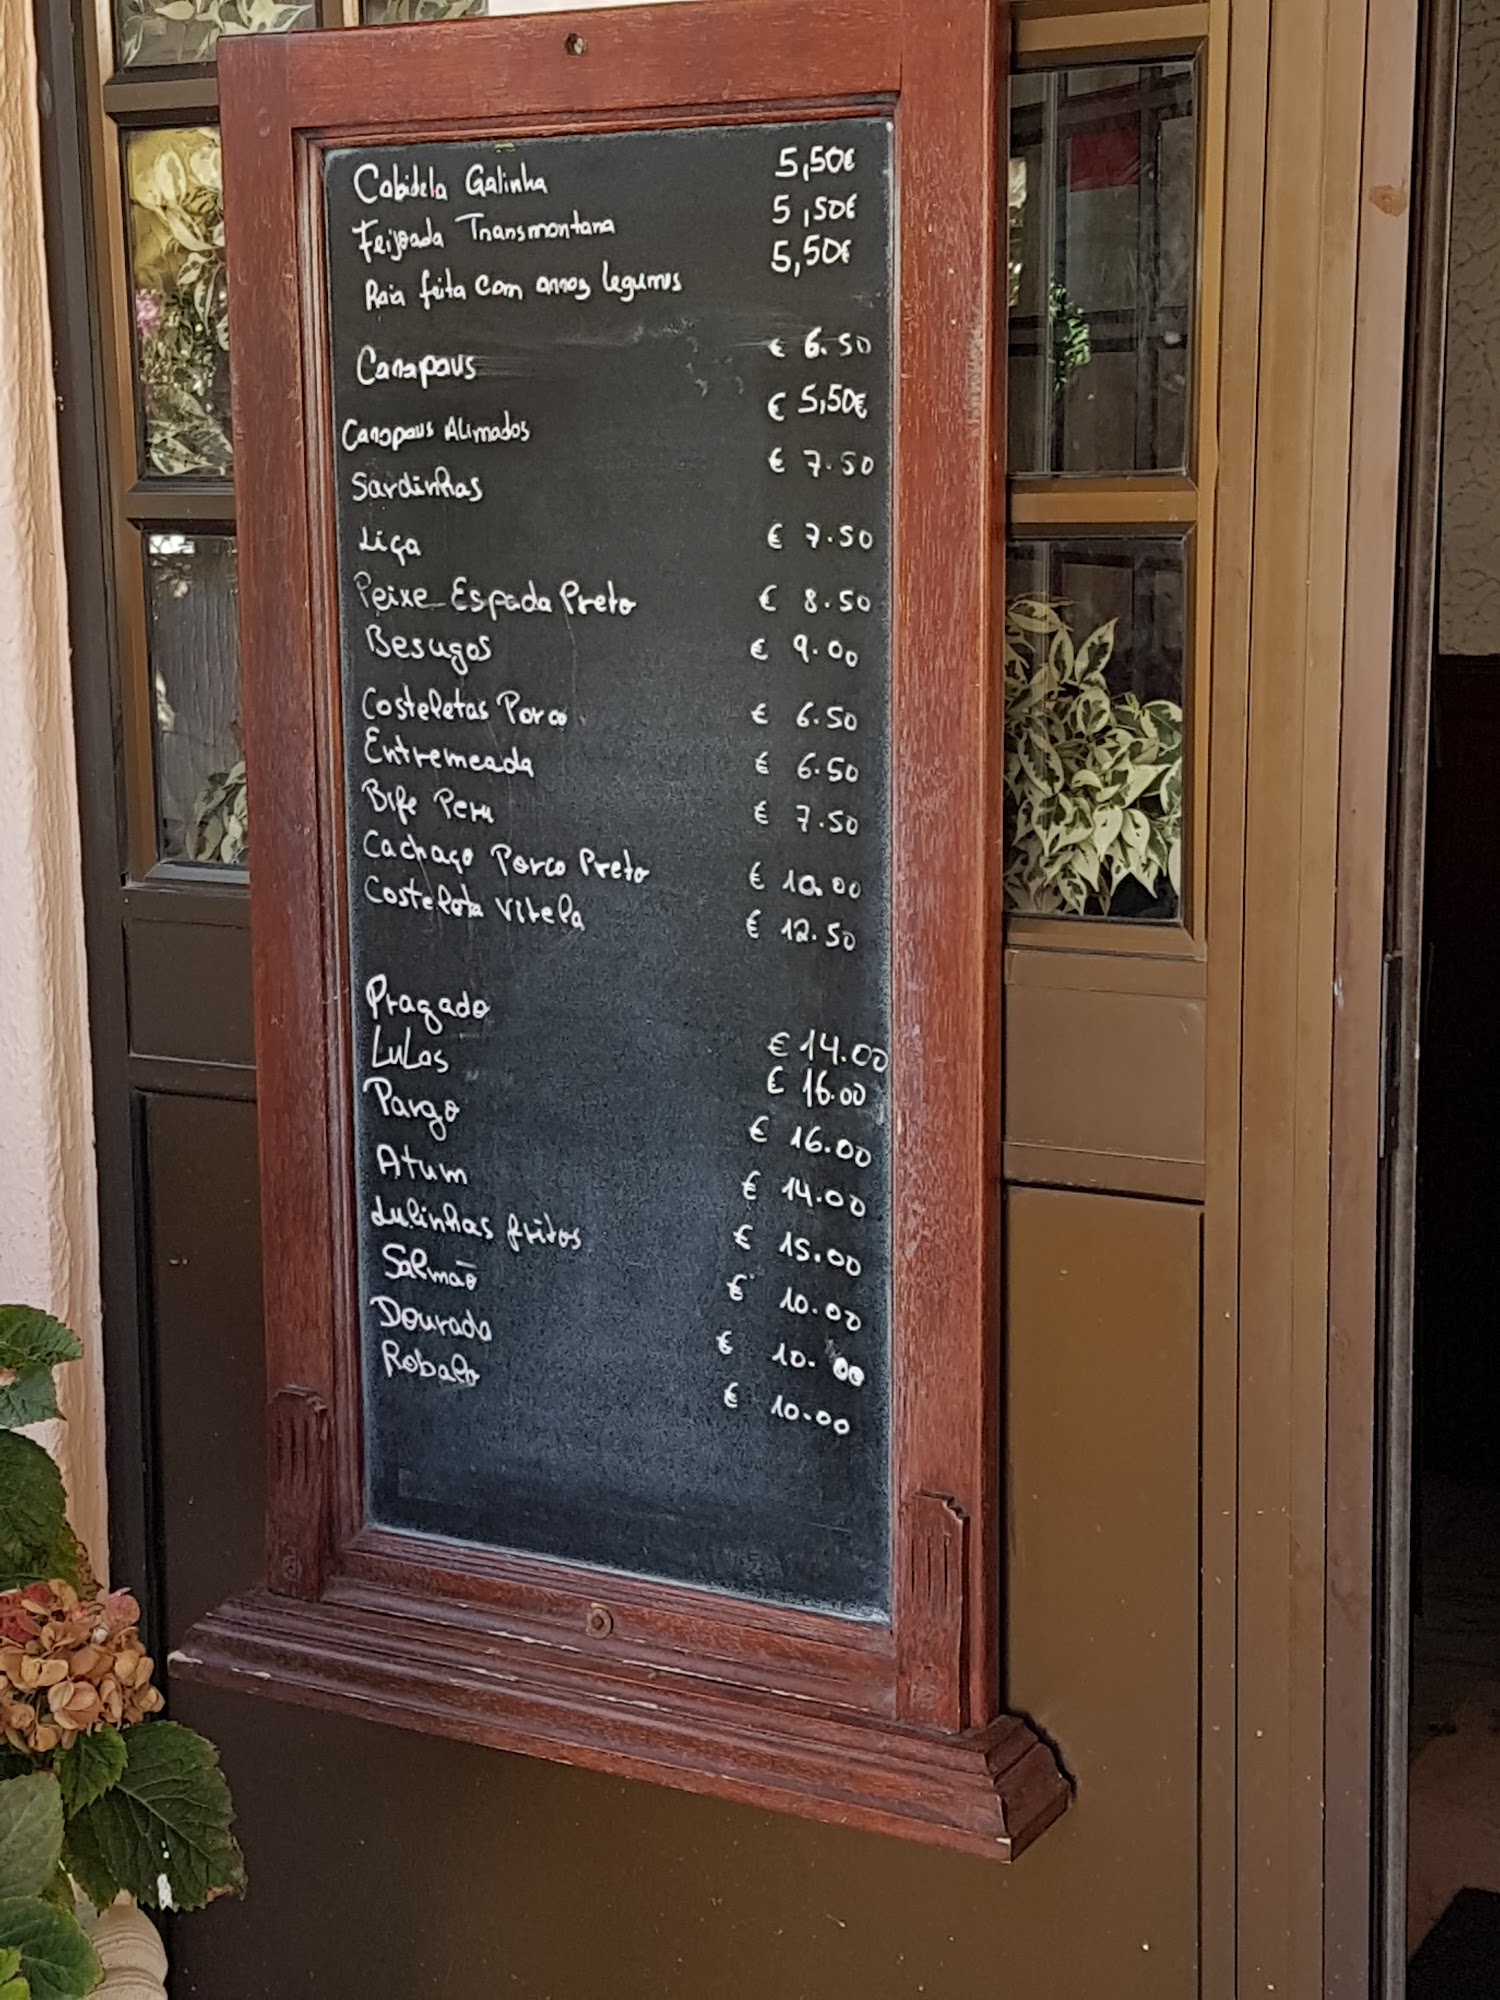 Cabidela Galinha 5,50€
Feijoada Transmontana 5,50€
Raia frita com arroz legumes 5,50€
Carapaus € 6.50
Carapaus Alimados € 5,50€
Sardinhas € 7.50
Liça € 7.50
Peixe Espada Preto € 8.50
Besugos € 9.00
Costeletas Porco € 6.50
Entremeada € 6.50
Bife Peru € 7.50
Cachaço Porco Preto € 10.00
Costeleta Vitela € 12.50
Pragado € 14.00
Lulas € 16.00
Pargo € 16.00
Atum € 14.00
Lulinhas fritas € 15.00
Salmão € 10.00
Dourada € 10.00
Robalo € 10.00